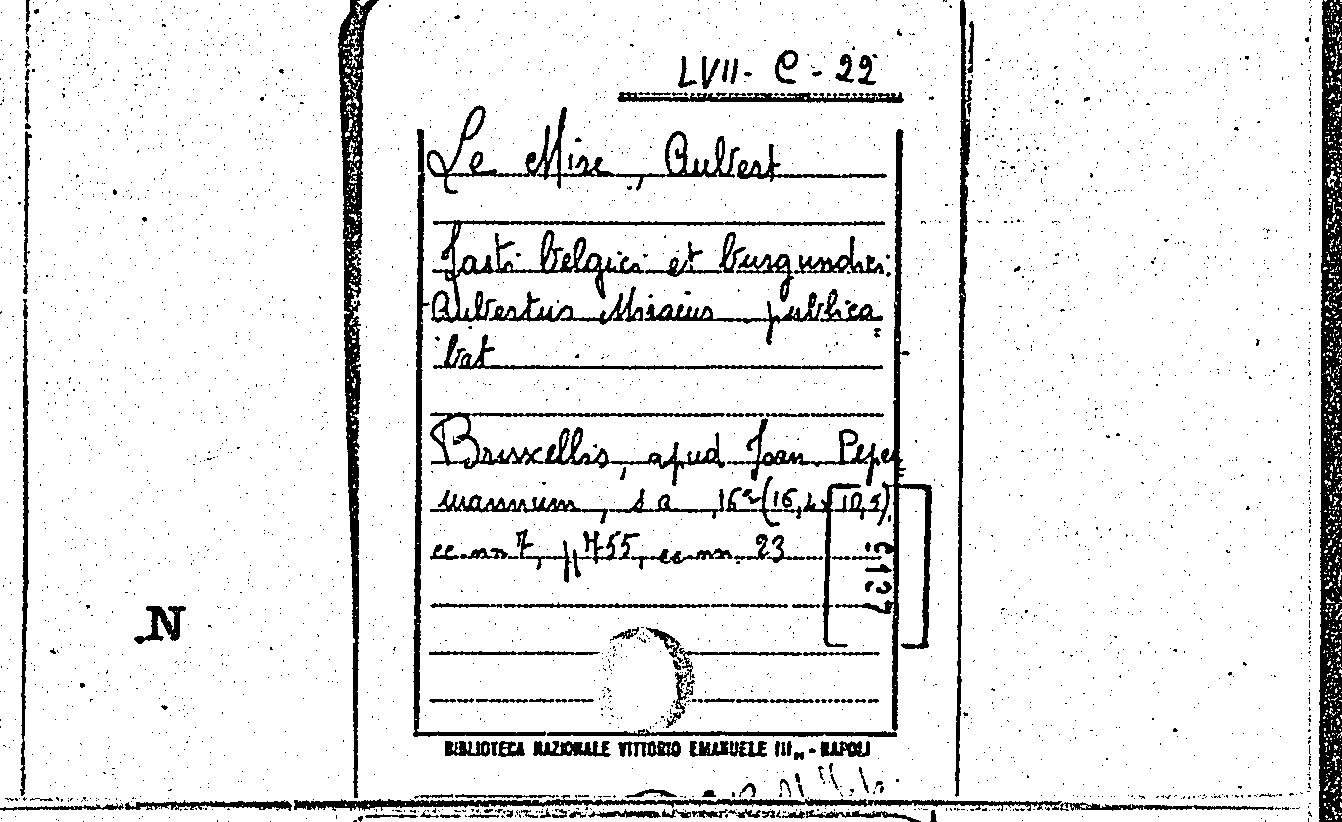 LVII - C - 22
Le Mire, Aubert
Fasti belgici et burgundici.
Aubertus Miraeus publica
bat
Bruxellis, apud Joan. Peper
mannum, s a 16° (16,4 x 10,5)
cc.nn 7, pp 755, cc nn. 23
C127
.N
BIBLIOTECA NAZIONALE VITTORIO EMANUELE III„ - NAPOLI